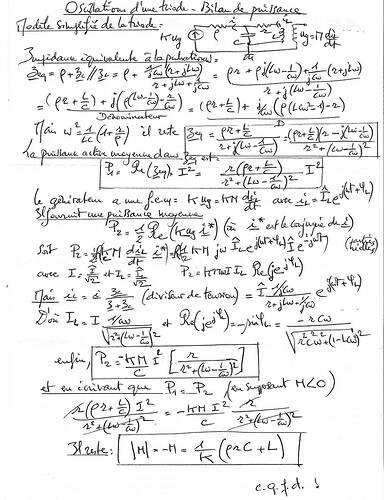 Oscillations d'une triode - Bilan de puissance
Modèle simplifié de la triode :
K ug ρ i iL C r L ug = M di/dt
Impédance équivalente à la pulsation ω :
Zeq = ρ + Zc // ZL = ρ + 1/jCω (r + jLω) / (r + jLω + 1/jCω) = ρr + ρj(Lω - 1/Cω) + 1/jCω (r + jLω) / r + j(Lω - 1/Cω)
= (ρr + L/C) + j(ρ(Lω - 1/Cω) - r/Cω) / Dénominateur = (ρr + L/C) + j/Cω (ρ(LCω² - 1) - r) / D
Mais ω² = 1/LC (1 + r/ρ) il reste Zeq = ρr + L/C / r + j(Lω - 1/Cω) = (ρr + L/C)(r - j(Lω - 1/Cω)) / r² + (Lω - 1/Cω)²
La puissance active moyenne dans Zeq est :
P1 = Re(Zeq) I² = r(ρr + L/C) / r² + (Lω - 1/Cω)² I²
Le générateur a une f.e.m = K ug = KM diL/dt avec iL = ÎL e^j(ωt + φL)
Il fournit une puissance moyenne
P2 = 1/2 Re(K ug i*) (où i* est le conjugué de i)
Soit P2 = 1/2 Re(KM diL/dt i*) = Re/2 KM jω ÎL e^j(ωt + φL) Î e^-jωt
avec I = Î/√2 et IL = ÎL/√2 P2 = KMω I IL Re(j e^jφL)
Mais iL = i Zc / Zc + ZL (diviseur de tension) = Î 1/jCω / r + jLω + 1/jCω e^j(ωt + φL)
D'où IL = I 1/Cω / √r² + (Lω - 1/Cω)² et Re(j e^jφL) = - sin φL = - rCω / √r²C²ω² + (1 - LCω²)²
enfin, P2 = - KM/C I² [ r / r² + (Lω - 1/Cω)² ]
et en écrivant que P1 = P2 (en supposant M < 0)
r(ρr + L/C) I² / r² + (Lω - 1/Cω)² = - KM I²/C r / r² + (Lω - 1/Cω)²
Il reste : |M| = -M = 1/K (ρrC + L)
c.q.f.d. !